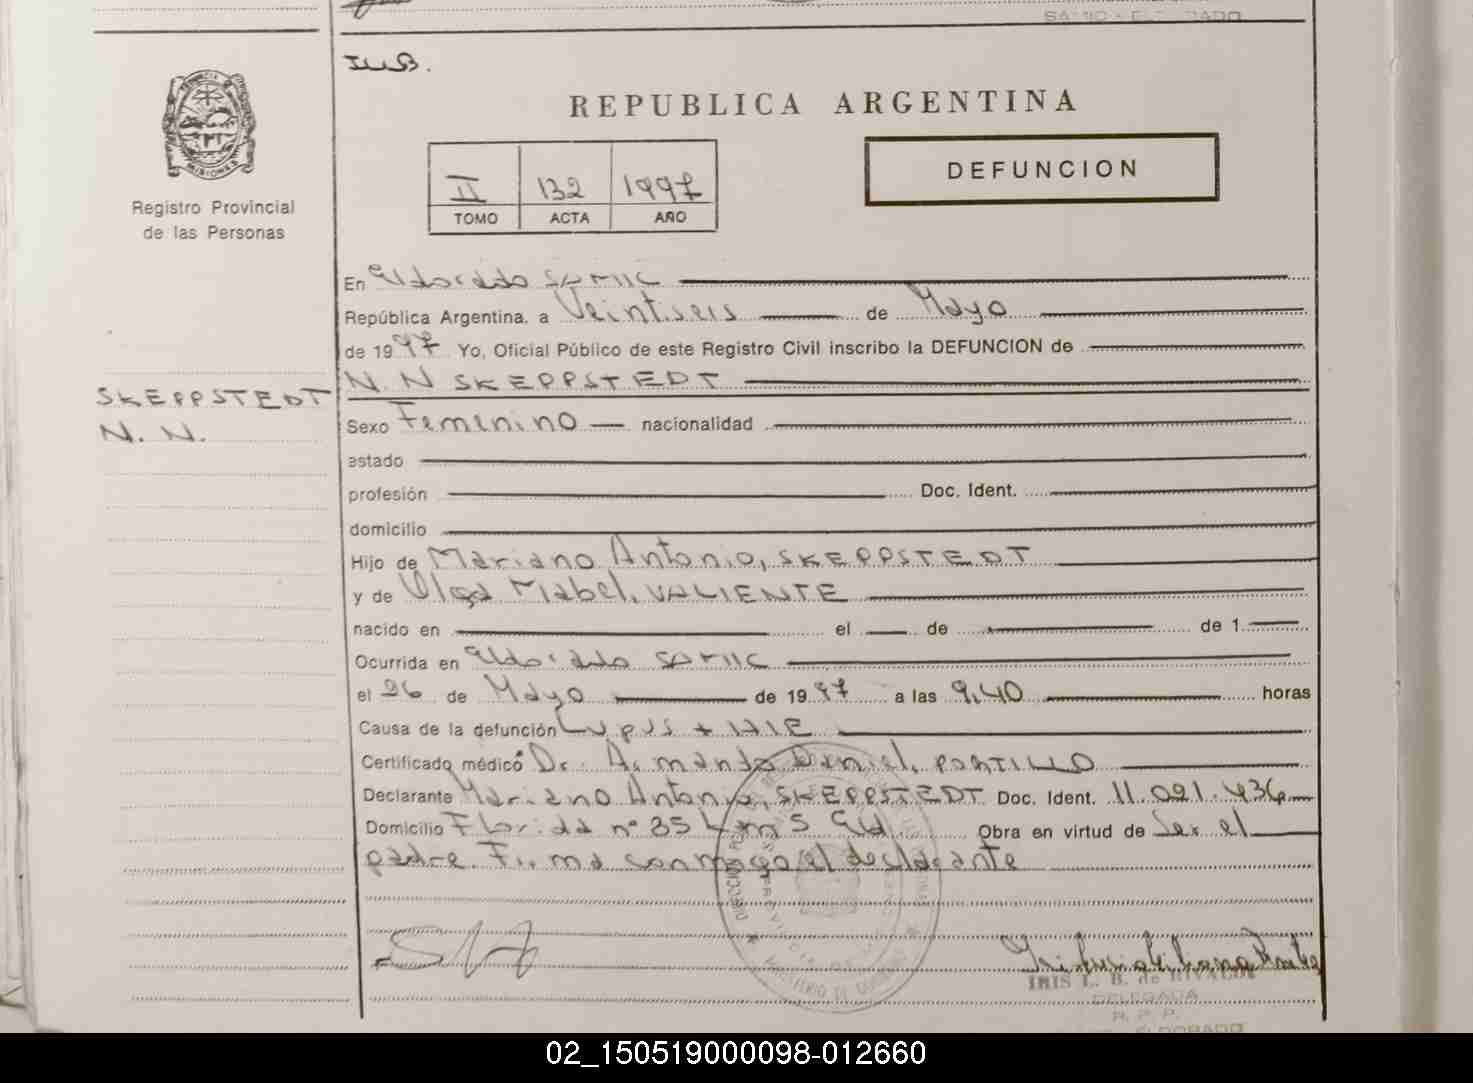 REPUBLICA ARGENTINA
DEFUNCION
II 132 1997
TOMO ACTA AÑO
MISIONES
Registro Provincial
de las Personas
En Eldorado SAMIC
República Argentina, a Veintiseis de Mayo
de 1997 Yo, Oficial Público de este Registro Civil inscribo la DEFUNCION de
N. N SKEPPSTEDT
SKEPPSTEDT
N. N.
Sexo Femenino nacionalidad
estado
profesión Doc. Ident.
domicilio
Hijo de Mariano Antonio, SKEPPSTEDT
y de Olga Mabel, VALIENTE
nacido en el de de 1
Ocurrida en Eldorado SAMIC
el 26 de Mayo de 1997 a las 9,40 horas
Causa de la defunción Lupus +
Certificado médico Dr. Armando Daniel, PORTILLO
Declarante Mariano Antonio, SKEPPSTEDT Doc. Ident. 11.021.436
Domicilio Florida nº 35 Km 5 Obra en virtud de Ser el
padre. Firma conmigo el declarante
IRIS L. B. de RIVALDI
DELEGADA
R. P. P.
ELDORADO
02_150519000098-012660